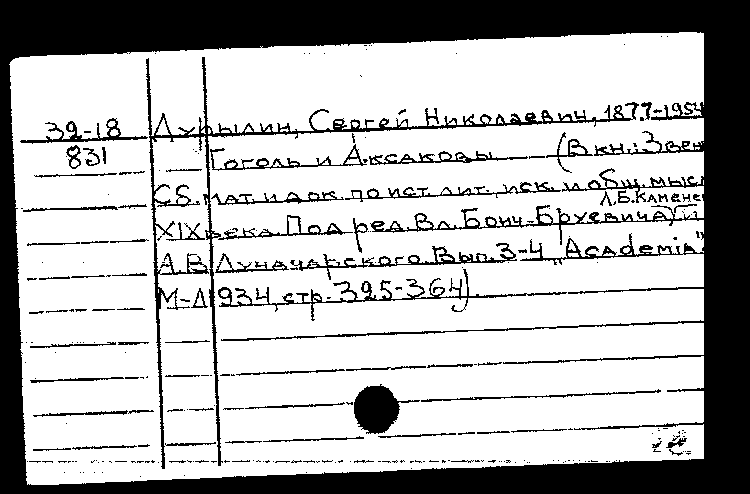 39-18
831
Дурылин, Сергей Николаевич, 1877-1954
Гоголь и Аксаковы (В кн.: Звен
Сб. мат. и док. по ист. лит., иск. и общ. мысл
Л.Б. Каменев
XIX века. Под ред. Вл. Бонч-Бруевича, и
А.В. Луначарского. Вып. 3-4 "Academia".
М-Л 1934, стр. 325-364).